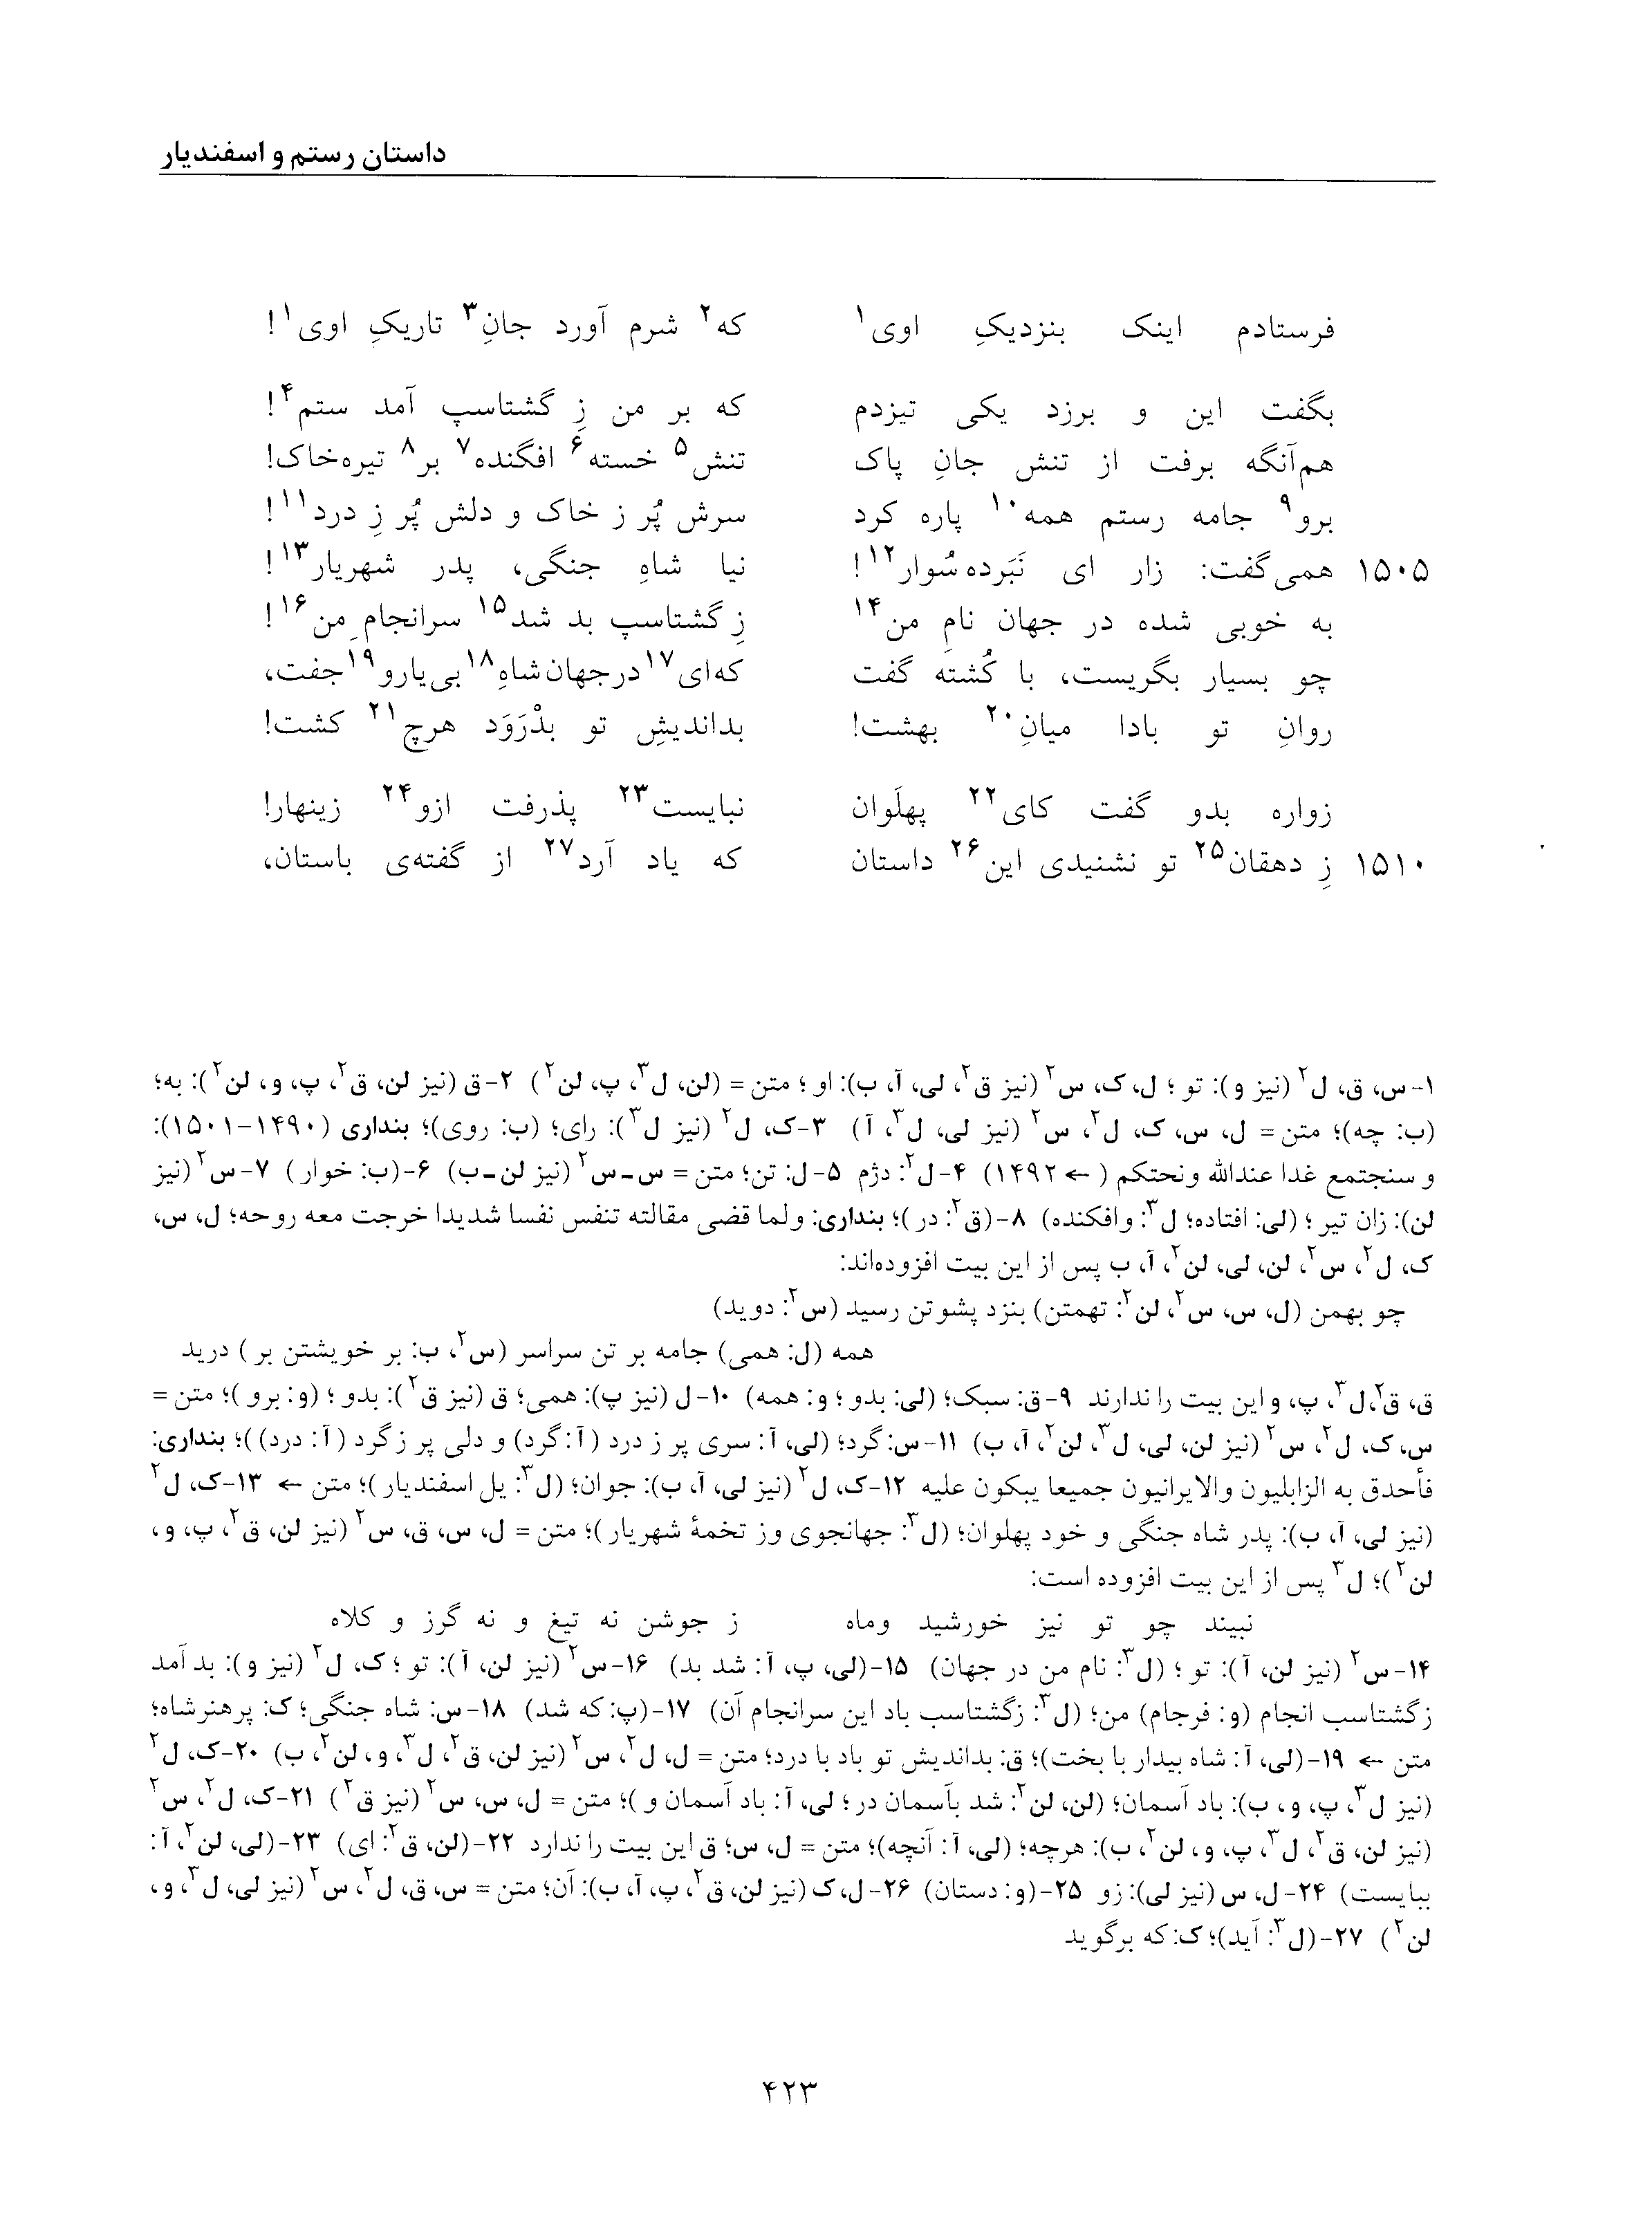 داستان رستم و اسفندیار
فرستادم اینک بنزدیکِ اوی۱ که۲ شرم آورد جانِ۳ تاریکِ اوی۱!
بگفت این و برزد یکی تیزدم که بر من زِ گشتاسپ آمد ستم۴!
هم‌آنگه برفت از تنش جانِ پاک تنش۵ خسته۶ افگنده۷ بر۸ تیره‌خاک!
برو۹ جامه رستم همه۱۰ پاره کرد سرش پُر ز خاک و دلش پُر زِ درد۱۱!
۱۵۰۵ همی‌گفت: زار ای نَبَرده سُوار۱۲! نیا شاهِ جنگی، پدر شهریار۱۳!
به خوبی شده در جهان نامِ من۱۴ زِ گشتاسپ بد شد۱۵ سرانجامِ من۱۶!
چو بسیار بگریست، با کُشته گفت که‌ای۱۷ در جهان شاهِ۱۸ بی‌یار و۱۹ جفت،
روانِ تو بادا میانِ۲۰ بهشت! بداندیشِ تو بدْرَوَد هرچ۲۱ کشت!
زواره بدو گفت کای۲۲ پهلَوان نبایست۲۳ پذرفت ازو۲۴ زینهار!
۱۵۱۰ زِ دهقان۲۵ تو نشنیدی این۲۶ داستان که یاد آرد۲۷ از گفته‌ی باستان،
۱-س، ق، ل۲ (نیز و): تو؛ ل، ک، س۲ (نیز ق۲، لی، آ، ب): او؛ متن = (لن، ل۳، پ، لن۲) ۲-ق (نیز لن، ق۲، پ، و، لن۲): به؛
(ب: چه)؛ متن = ل، س، ک، ل۲، س۲ (نیز لی، ل۳، آ) ۳-ک، ل۲ (نیز ل۳): رای؛ (ب: روی)؛ بنداری (۱۴۹۰-۱۵۰۱):
و سنجتمع غدا عندالله ونحتکم ( ← ۱۴۹۲) ۴-ل۲: دژم ۵-ل: تن؛ متن = س-س۲ (نیز لن-ب) ۶-(ب: خوار) ۷-س۲ (نیز
لن): زان تیر؛ (لی: افتاده؛ ل۳: وافکنده) ۸-(ق۲: در)؛ بنداری: ولما قضی مقالته تنفس نفسا شدیدا خرجت معه روحه؛ ل، س،
ک، ل۲، س۲، لن، لی، لن۲، آ، ب پس از این بیت افزوده‌اند:
چو بهمن (ل، س، س۲، لن۲: تهمتن) بنزد پشوتن رسید (س۲: دوید)
همه (ل: همی) جامه بر تن سراسر (س۲، ب: بر خویشتن بر) درید
ق، ق۲، ل۳، پ، و این بیت را ندارند ۹-ق: سبک؛ (لی: بدو؛ و: همه) ۱۰-ل (نیز پ): همی؛ ق (نیز ق۲): بدو؛ (و: برو)؛ متن =
س، ک، ل۲، س۲ (نیز لن، لی، ل۳، لن۲، آ، ب) ۱۱-س: گرد؛ (لی، آ: سری پر ز درد (آ: گرد) و دلی پر ز گرد (آ: درد))؛ بنداری:
فأحدق به الزابلیون والایرانیون جمیعا یبکون علیه ۱۲-ک، ل۲ (نیز لی، آ، ب): جوان؛ (ل۳: یل اسفندیار)؛ متن ← ۱۳-ک، ل۲
(نیز لی، آ، ب): پدر شاه جنگی و خود پهلوان؛ (ل۳: جهانجوی وز تخمهٔ شهریار)؛ متن = ل، س، ق، س۲ (نیز لن، ق۲، پ، و،
لن۲)؛ ل۳ پس از این بیت افزوده است:
نبیند چو تو نیز خورشید وماه ز جوشن نه تیغ و نه گرز و کلاه
۱۴-س۲ (نیز لن، آ): تو؛ (ل۳: نام من در جهان) ۱۵-(لی، پ، آ: شد بد) ۱۶-س۲ (نیز لن، آ): تو؛ ک، ل۲ (نیز و): بد آمد
زگشتاسب انجام (و: فرجام) من؛ (ل۳: زگشتاسب باد این سرانجام آن) ۱۷-(پ: که شد) ۱۸-س: شاه جنگی؛ ک: پرهنرشاه؛
متن ← ۱۹-(لی، آ: شاه بیدار با بخت)؛ ق: بداندیش تو باد با درد؛ متن = ل، ل۲، س۲ (نیز لن، ق۲، ل۳، و، لن۲، ب) ۲۰-ک، ل۲
(نیز ل۳، پ، و، ب): باد آسمان؛ (لن، لن۲: شد بآسمان در؛ لی، آ: باد آسمان و)؛ متن = ل، س، س۲ (نیز ق۲) ۲۱-ک، ل۲، س۲
(نیز لن، ق۲، ل۳، پ، و، لن۲، ب): هرچه؛ (لی، آ: آنچه)؛ متن = ل، س؛ ق این بیت را ندارد ۲۲-(لن، ق۲: ای) ۲۳-(لی، لن۲، آ:
ببایست) ۲۴-ل، س (نیز لی): زو ۲۵-(و: دستان) ۲۶-ل، ک (نیز لن، ق۲، پ، آ، ب): آن؛ متن = س، ق، ل۲، س۲ (نیز لی، ل۳، و،
لن۲) ۲۷-(ل۳: آید)؛ ک: که برگوید
۴۲۳